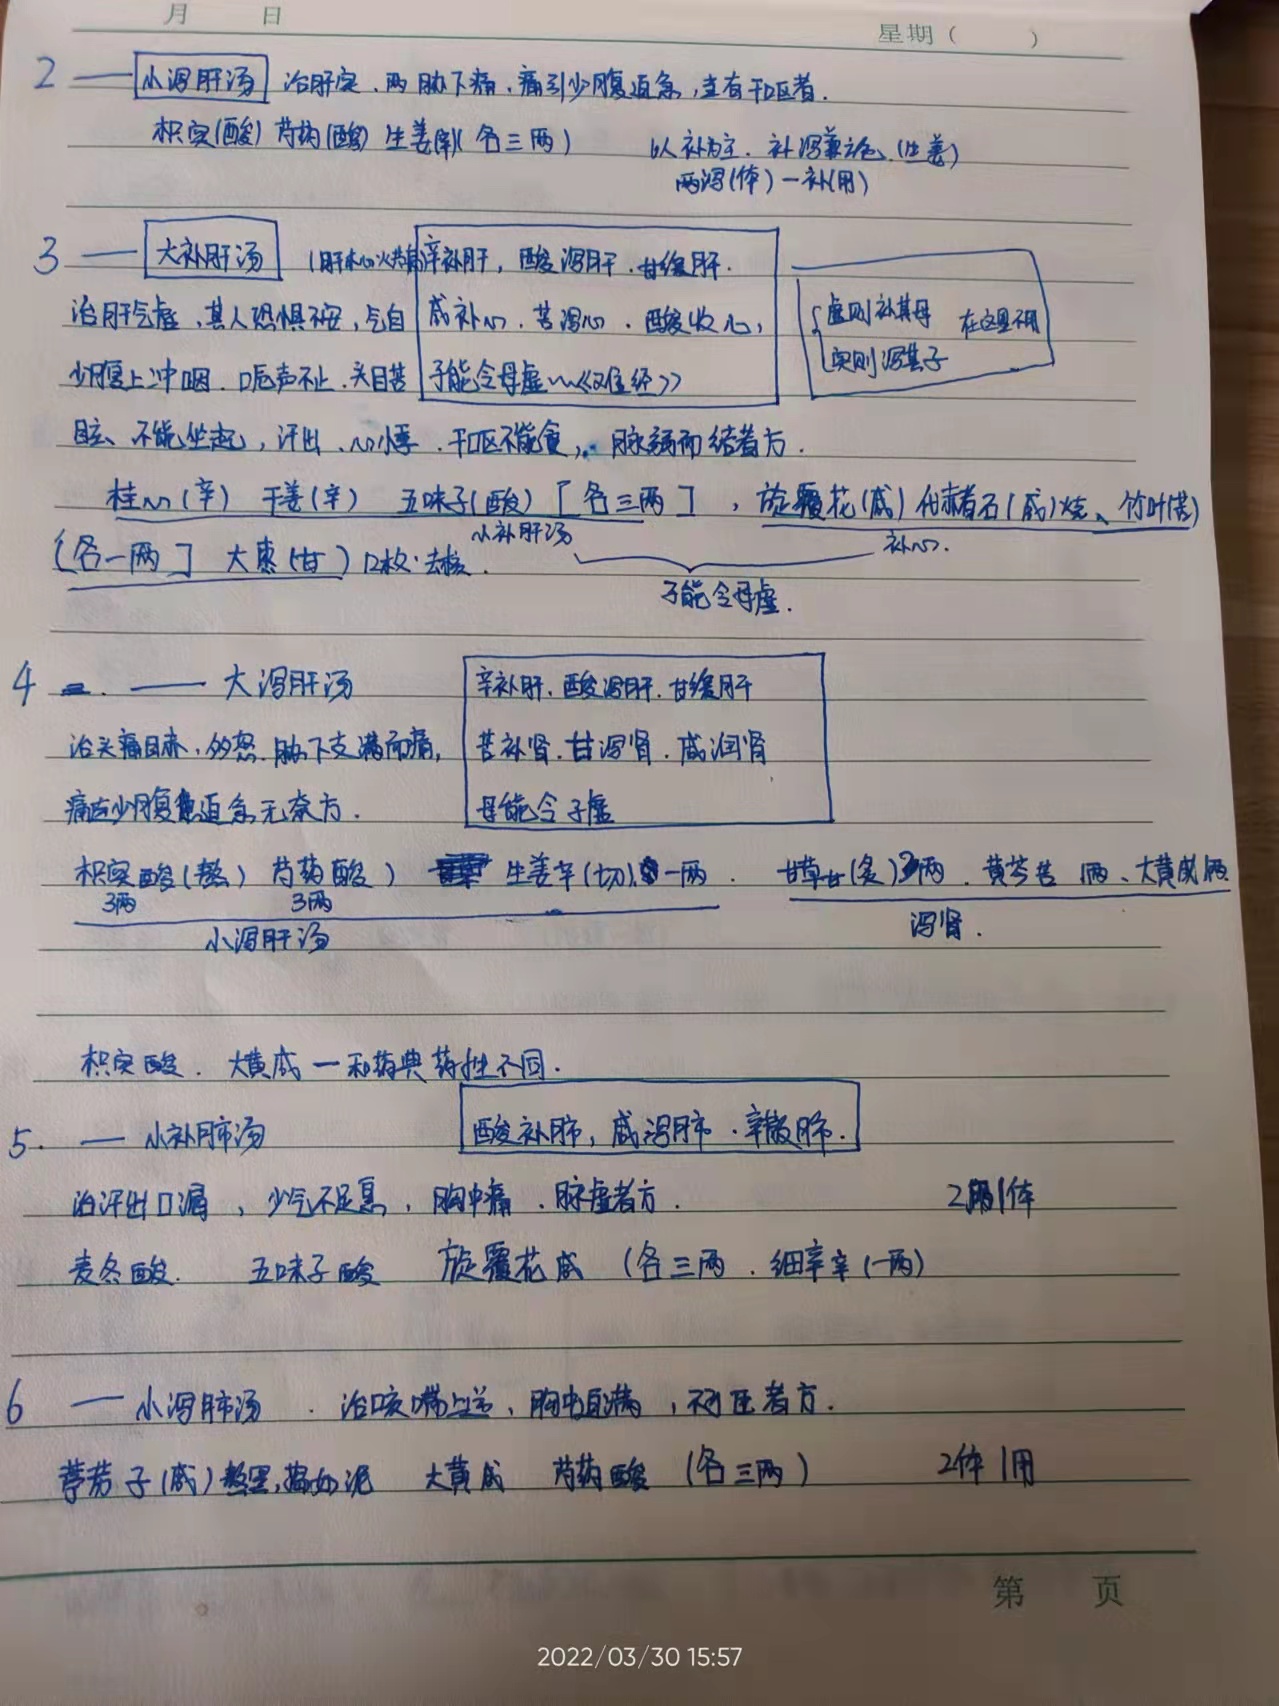 月 日
星期( )
2 —— 小泻肝汤 治肝实、两胁下痛、痛引少腹迫急,当有干呕者.
枳实(酸) 芍药(酸) 生姜(辛)( 各三两 )
以补为主. 补泻兼施.(生姜)
两泻(体)一补(用)
3 —— 大补肝汤
辛补肝, 酸泻肝.甘缓肝.
咸补心、苦泻心.酸收心,
子能令母虚《难经》
虚则补其母
实则泻其子
在这里不用
治肝气虚、其人恐惧不安,气自
少腹上冲咽、呃声不止、头目苦
眩、不能坐起,汗出、心悸.干呕不能食,脉弱而结者方.
桂心(辛) 干姜(辛) 五味子(酸)[各三两], 旋覆花(咸)代赭石(咸)烧、竹叶(苦)
小补肝汤
补心.
(各一两] 大枣(甘)12枚.去核.
子能令母虚.
4 —— 大泻肝汤
辛补肝、酸泻肝.甘缓肝
苦补肾.甘泻肾.咸润肾
母能令子虚
治头痛目赤、多怒.胁下支满而痛,
痛连少腹迫急无奈方.
枳实酸(熬) 芍药酸) 生姜辛(切)一两. 甘草甘(炙)两.黄芩苦1两、大黄咸1两
3两 3两
小泻肝汤
泻肾.
枳实酸. 大黄咸—和药典药性不同.
5. — 小补肺汤
酸补肺,咸泻肺.辛散肺.
治汗出口渴,少气不足息,胸中痛.脉虚者方.
2用1体
麦冬酸. 五味子酸 旋覆花咸 (各三两.细辛辛(一两)
6 — 小泻肺汤.治咳喘上气、胸中迫满,不可卧者方.
葶苈子(咸)熬黑,捣如泥 大黄咸 芍药酸 (各三两)
2体1用
第 页
2022/03/30 15:57